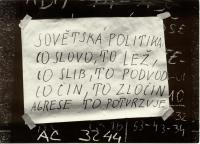 SOVĚTSKÁ POLITIKA
CO SLOVO, TO LEŽ,
CO SLIB, TO PODVOD
CO ČIN, TO ZLOČIN
AGRESE TO POTVRZUJE
AC 3244
53-43-34